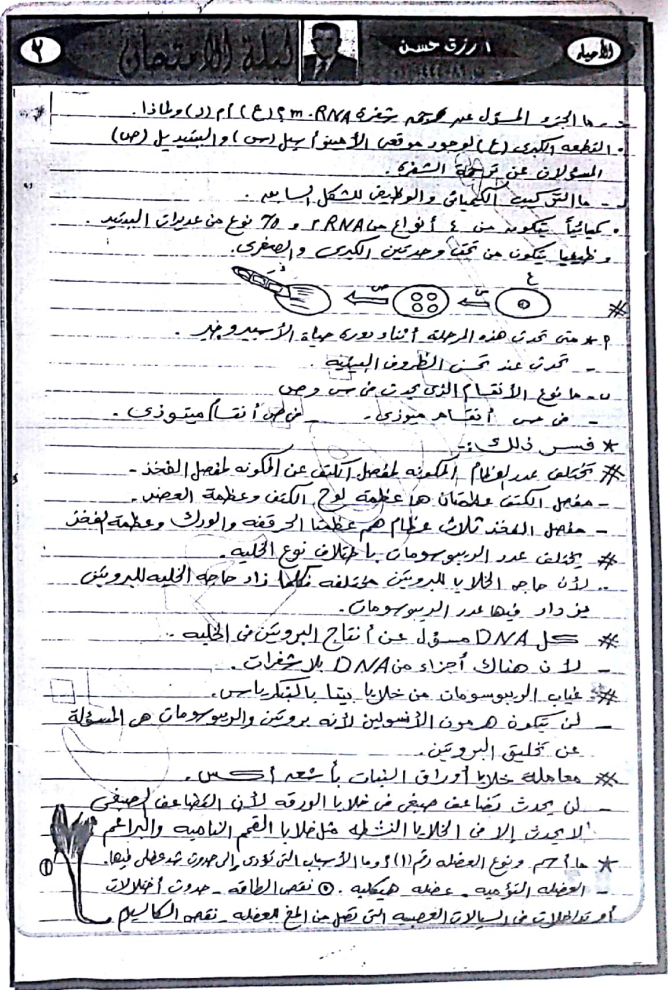 الأحياء
ا/ رزق حسن
ليلة الامتحان
٢
ج - ما الجزء المسؤل عن ترجمة شفرة m.RNA ؟ (ع) أم (د) ولماذا.
• القطعه الكبرى (ع) لوجود موقعى الأمينو أسيل (س) والببتيديل (ص)
المسؤلان عن ترجمة الشفرى.
د - ما التركيب الكيميائى والوظيفى للشكل السابق.
• كيميائياً يتكون من ٤ أنواع من rRNA و ٧٠ نوع من عديدات الببتيد.
وظيفيا يتكون من تحت وحدتين الكبرى والصغرى.
ع
س
ص
#
٢ * متى تحدث هذه المرحلة أثناء دورى حياة الأسبيروجيرا.
- تحدث عند تحسن الظروف البيئيه.
ب - ما نوع الأنقسام الذى يحدث فى س و ص
- فى س أنقسام ميوزى. - فى ص أنقسام ميتوزى.
* فسر ذلك :-
# تختلف عدد العظام المكونه لمفصل الكتف عن المكونه لمفصل الفخذ -
- مفصل الكتف عظمتان هما عظمة لوح الكتف وعظمة العضد.
- مفصل الفخذ ثلاث عظام هم عظمتا الحرقفه والورك وعظمة الفخذ
# يختلف عدد الريبوسومات باختلاف نوع الخليه.
- لأن حاجه الخلايا للبروتين مختلفه فكلما زاد حاجه الخليه للبروتين
يزداد فيها عدد الريبوسومات.
# كل DNA مسؤل عن أنتاج البروتين فى الخليه.
- لأن هناك أجزاء من DNA بلا شفرات.
# غياب الريبوسومات من خلايا بيتا بالبنكرياس.
- لن يتكون هرمون الأنسولين لأنه بروتين والريبوسومات هى المسؤلة
عن تخليق البروتين.
# معاملة خلايا أوراق النبات بأشعه أكس.
- لن يحدث تضاعف صبغى فى خلايا الورقه لأن التضاعف الصبغى
لا يحدث إلا فى الخلايا النشطه مثل خلايا القمم الناميه والبراعم
* ما أسم ونوع العضله رقم (١) وما الأسباب التى تؤدى إلى حدوث شد عضلى فيها.
①
العضله التؤميه - عضله هيكليه. نقص الطاقه - حدوث أختلالات
أو تداخلات فى السيالات العصبيه التى تصل من المخ للعضله - نقص الكالسيوم